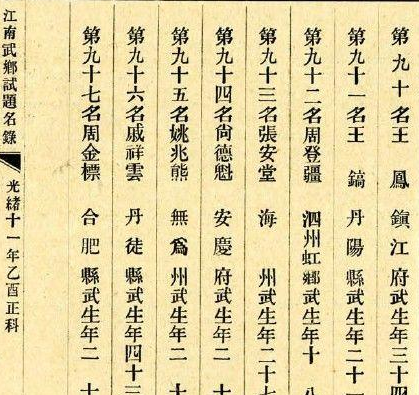 第九十名王鳳鎮江府武生年三十四
第九十一名王鎬丹陽縣武生年二十一
第九十二名周登疆泗州虹鄉武生年十八
第九十三名張安堂海州武生年二十七
第九十四名尙德魁安慶府武生年二十
第九十五名姚兆熊無爲州武生年二十
第九十六名戚祥雲丹徒縣武生年四十三
第九十七名周金標合肥縣武生年二十
江南武鄉試題名錄
光緒十一年乙酉正科